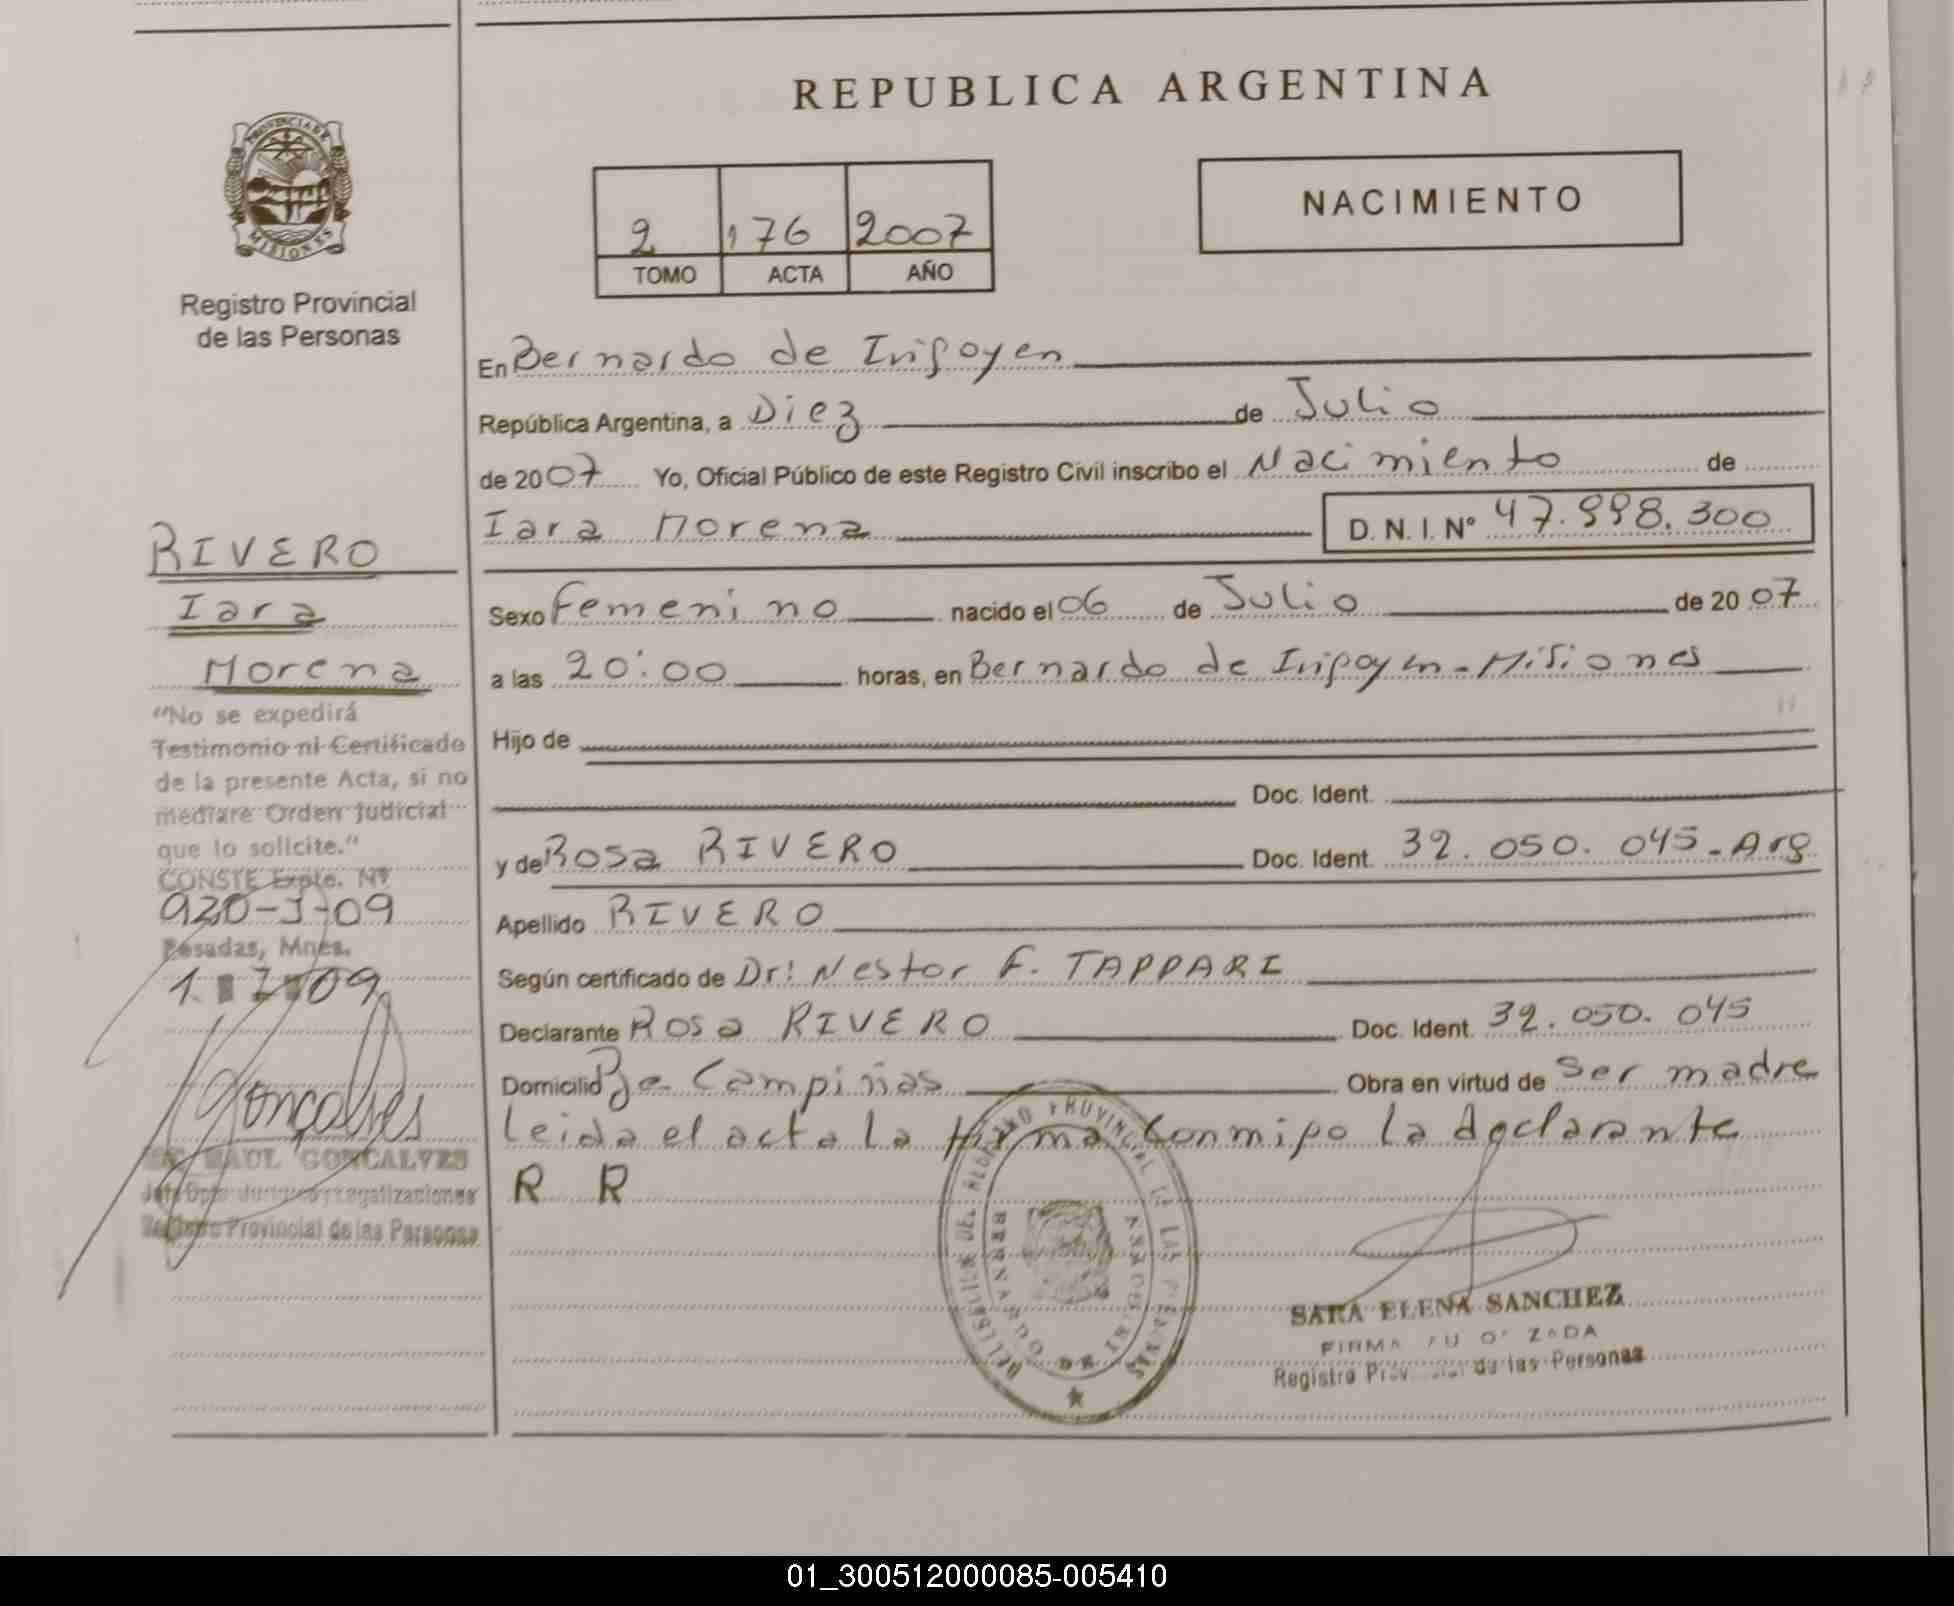 REPUBLICA ARGENTINA
PROVINCIA DE
MISIONES
Registro Provincial
de las Personas
2 176 2007
TOMO ACTA AÑO
NACIMIENTO
En Bernardo de Irigoyen
República Argentina, a Diez de Julio
de 2007 Yo, Oficial Público de este Registro Civil inscribo el Nacimiento de
Iara Morena D. N. I. Nº 47.998.300
Sexo Femenino nacido el 06 de Julio de 2007
a las 20:00 horas, en Bernardo de Irigoyen - Misiones
Hijo de
Doc. Ident.
y de Rosa RIVERO Doc. Ident. 32.050.045 - Arg
Apellido RIVERO
Según certificado de Dr: Nestor F. TAPPARI
Declarante Rosa RIVERO Doc. Ident. 32.050.045
Domicilio Pje Campiñas Obra en virtud de Ser madre
Leida el acta La firma Conmigo la declarante
R R
SARA ELENA SANCHEZ
FIRMA
Registro de las Personas
RIVERO
Iara
Morena
"No se expedirá
Testimonio ni Certificado
de la presente Acta, si no
mediare Orden Judicial
que lo solicite."
CONSTE Expte. Nº
920-J-09
Posadas, Mnes.
Gonçalves
RAUL GONCALVES
Registro Provincial de las Personas
01_300512000085-005410